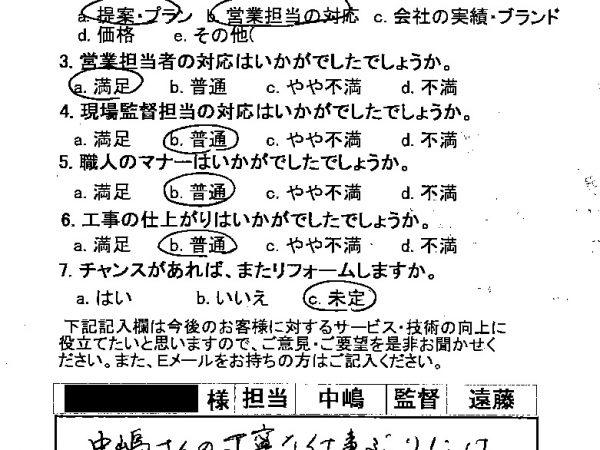 a. 提案・プラン b. 営業担当の対応 c. 会社の実績・ブランド
d. 価格 e. その他(
3. 営業担当者の対応はいかがでしたでしょうか。
a. 満足 b. 普通 c. やや不満 d. 不満
4. 現場監督担当の対応はいかがでしたでしょうか。
a. 満足 b. 普通 c. やや不満 d. 不満
5. 職人のマナーはいかがでしたでしょうか。
a. 満足 b. 普通 c. やや不満 d. 不満
6. 工事の仕上がりはいかがでしたでしょうか。
a. 満足 b. 普通 c. やや不満 d. 不満
7. チャンスがあれば、またリフォームしますか。
a. はい b. いいえ c. 未定
下記記入欄は今後のお客様に対するサービス・技術の向上に
役立てたいと思いますので、ご意見・ご要望を是非お聞かせく
ださい。また、Eメールをお持ちの方はご記入ください。
様 担当 中嶋 監督 遠藤
中嶋さんの丁寧な仕事ぶりには